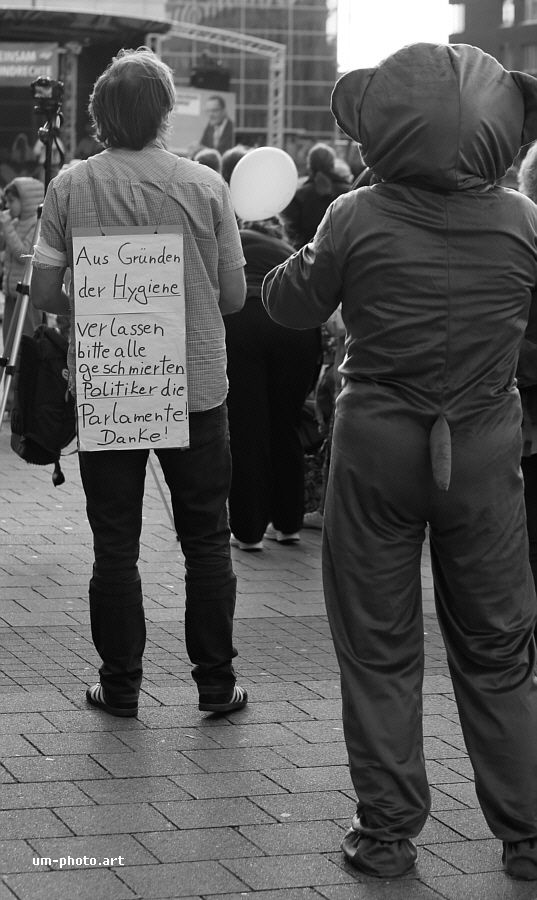 EINSAM
NDREC
Aus Gründen
der Hygiene
verlassen
bitte alle
geschmierten
Politiker die
Parlamente!
Danke!
um-photo.art